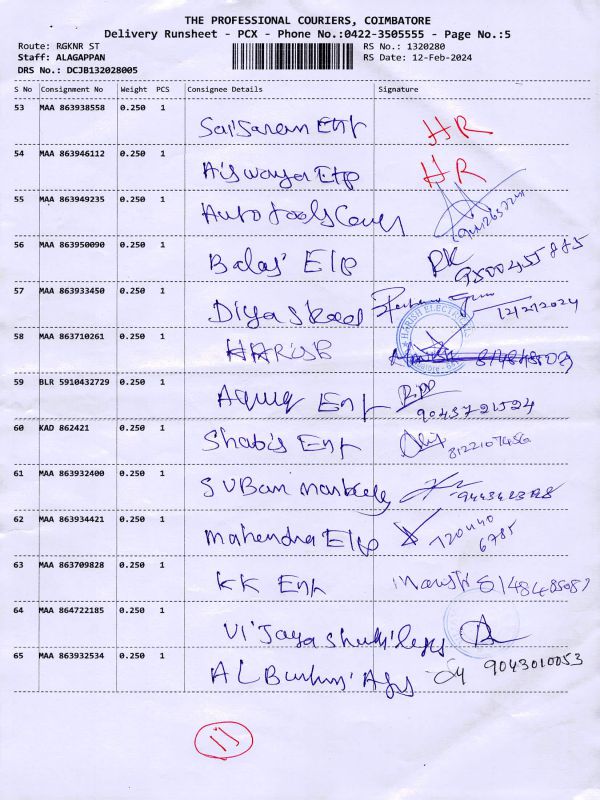 THE PROFESSIONAL COURIERS, COIMBATORE
Delivery Runsheet - PCX - Phone No.:0422-3505555 - Page No.:5
Route: RGKNR ST RS No.: 1320280
Staff: ALAGAPPAN RS Date: 12-Feb-2024
DRS No.: DCJB132028005
S No Consignment No Weight PCS Consignee Details Signature
53 MAA 863938558 0.250 1
Saisaram Ent HR
54 MAA 863946112 0.250 1
Aiswarya Elp HR
55 MAA 863949235 0.250 1
Auto tools
56 MAA 863950090 0.250 1
Balaj Elp RK
57 MAA 863933450 0.250 1
Diya 12/2/2024
58 MAA 863710261 0.250 1
HARISH HARISH ELECTRICALS
59 BLR 5910432729 0.250 1
Ent 9043721524
60 KAD 862421 0.250 1
Shabis Ent 8122107456
61 MAA 863932400 0.250 1
SUBam
62 MAA 863934421 0.250 1
mahendra Elp 720440
6785
63 MAA 863709828 0.250 1
KK Ent
64 MAA 864722185 0.250 1
65 MAA 863932534 0.250 1
AL 9043010053